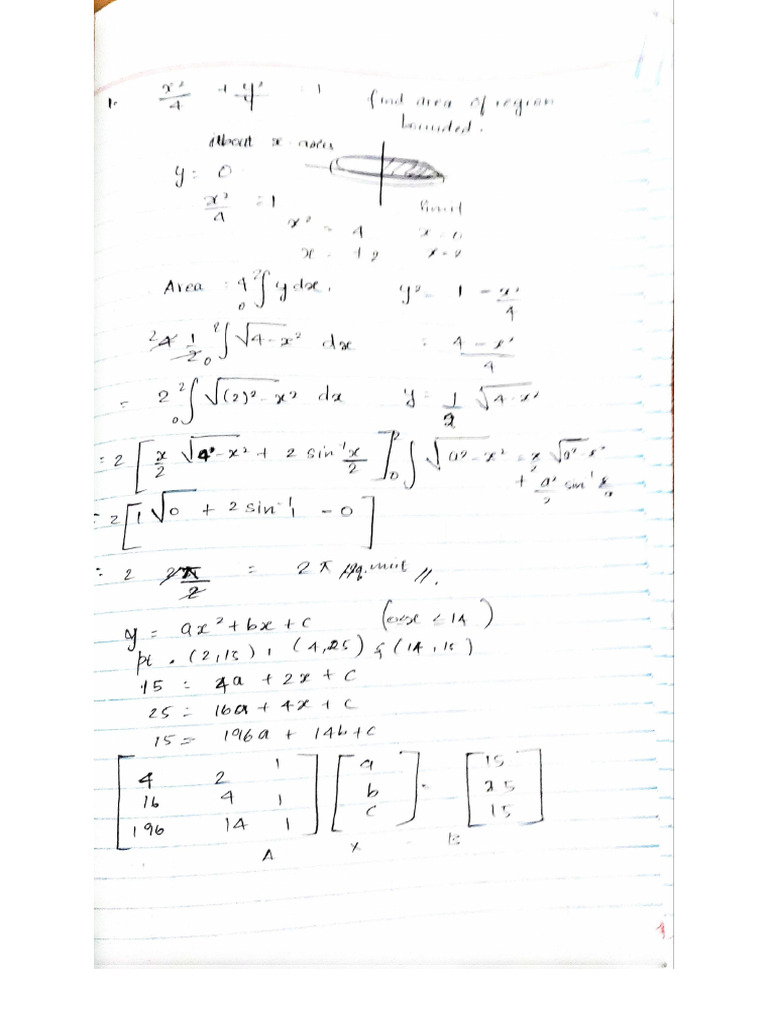 1. x²/4 + y²/4 = 1 find area of region
bounded.
About x axis
y = 0
x²/4 = 1
x² = 4
x = +2
limit
x = 0
x = 2
Area : 4 ₀∫² y dx. y² = 1 - x²/4
4 1/2 ₀∫² √4-x² dx = 4-x²/4
= 2 ₀∫² √(2)²-x² dx y = 1/2 √4-x²
= 2 [x/2 √4-x² + 2 sin⁻¹ x/2]₀² ∫√a²-x² = x/2 √a²-x²
+ a²/2 sin⁻¹ x/a
= 2 [1 √0 + 2 sin⁻¹ 1 - 0]
= 2 2π/2 = 2π sq.unit //.
y = ax² + bx + c (0<x<14)
pt . (2,15), (4,25) & (14,15)
15 = 4a + 2x + c
25 = 16a + 4x + c
15 = 196a + 14b + c
[4 2 1] [a] = [15]
[16 4 1] [b] [25]
[196 14 1] [c] [15]
A X B